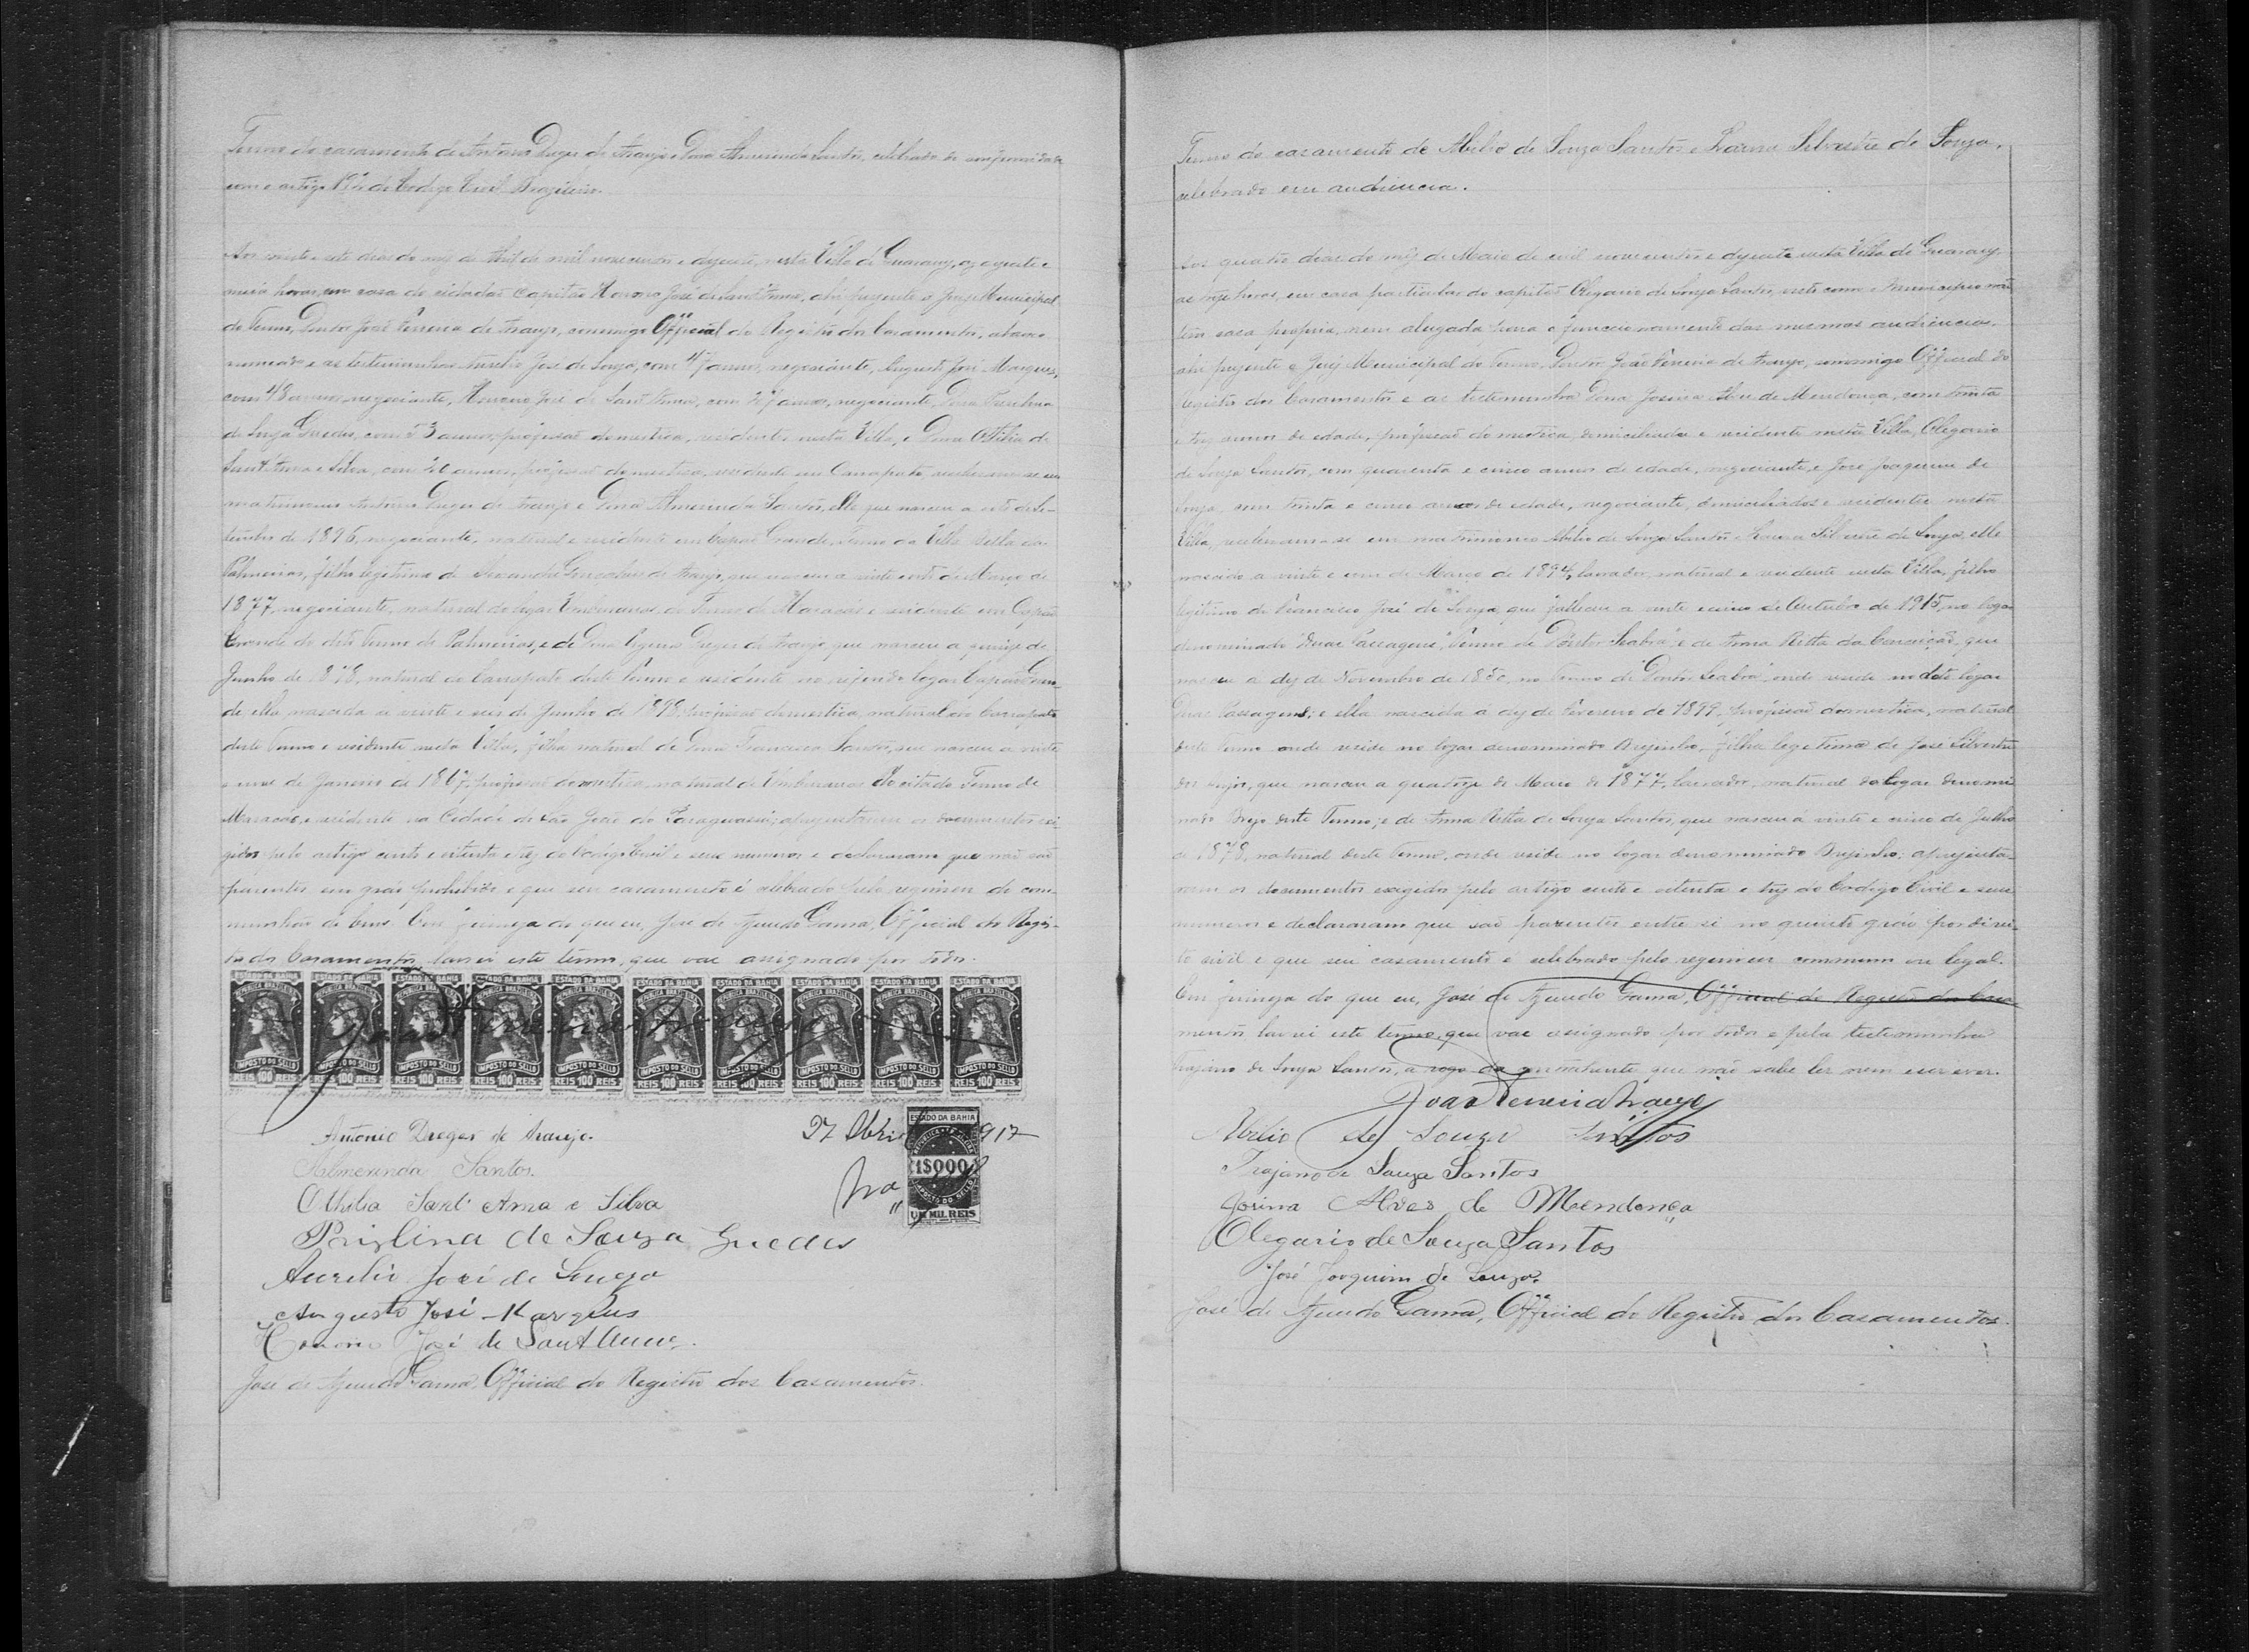 Termo do casamento de Antonio Dreger de Araujo e Dona Almerinda Santos, celebrado de conformidade
com o artigo 192 do Codigo Civil Brazileiro.
Aos vinte e sete dias do mez de Abril de mil novecentos e dezesete, nesta Villa de Guarany, ás dezesete e
meia horas, em casa do cidadão Capitão Honorio José de Sant'Anna, ahi presente o Juiz Municipal
do Termo, Doutor João Pereira de Araujo, commigo Official do Registro dos Casamentos, abaixo
nomeado e as testemunhas Aurelio José de Souza, com 47 annos, negociante, Augusto José Marques,
com 48 annos, negociante, Honorio José de Sant'Anna, com annos, negociante, Dona Prizilina
de Souza Guedes, com 53 annos, profissão domestica, residentes nesta Villa, e Dona Othilia de
Sant'Anna e Silva, com annos, profissão domestica, residente em Carrapato, receberam-se em
matrimonio Antonio Dreger de Araujo e Dona Almerinda Santos, elle que nasceu a oito de Se-
tembro de 1896, negociante, natural e residente em Capão Grande, Termo da Villa Bella das
Palmeiras, filho legitimo de Alexandre Gonçalves de Araujo, que nasceu a vinte e sete de Março de
1877, negociante, natural do logar Umburanas, do Termo de Maracás e residente em Capão
Grande do dito Termo de Palmeiras, e de Dona Dreger de Araujo que nasceu a quinze de
Junho de 1878, natural do Carrapato deste Termo e residente no referido logar Capão Gran-
de, ella nascida a vinte e seis de Junho de 1898, profissão domestica, natural do Carrapato
deste Termo e residente nesta Villa, filha natural de Dona Francisca Santos, que nasceu a vinte
e um de Janeiro de 1867, profissão domestica, natural de Umburanas do citado Termo de
Maracás, e residente na Cidade de São João do Paraguassú; apresentaram os documentos exi-
gidos pelo artigo cento e oitenta e trez do Codigo Civil e seus numeros e declararam que não são
parentes em gráo prohibido e que seu casamento é celebrado pelo regimen de com-
munhão de bens. Em firmeza do que eu, José de Azevedo Gama, Official do Regis-
tro dos Casamentos, lavrei este termo, que vae assignado por todos.
ESTADO DA BAHIA
REPUBLICA BRAZILEIRA
IMPOSTO DO SELLO
REIS 100 REIS
João Pereira de Araujo
Antonio Dreger de Araujo.
27 Abril 1917
ESTADO DA BAHIA
1$000
IMPOSTO DO SELLO
UM MIL REIS
Almerinda Santos.
Othilia Sant'Anna e Silva
Prizlina de Souza Guedes
Aurelio José de Souza
Augusto José Marques
Honorio José de Sant'Anna.
José de Azevedo Gama, Official do Registro dos Casamentos.
Termo do casamento de Abilio de Souza Santos e Silvestre de Souza,
celebrado em audiencia.
Aos quatro dias do mez de Maio de mil novecentos e dezesete nesta Villa de Guarany,
ás onze horas, em casa particular do capitão Olegario de Souza Santos, visto como o Municipio não
tem casa propria, nem alugada para o funccionamento das mesmas audiencias,
ahi prezente o Juiz Municipal do Termo, Doutor João Pereira de Araujo, commigo Official do
Registro dos Casamentos e as testemunhas Dona Josina Alves de Mendonça, com trinta
e trez annos de edade, profissão domestica, domiciliada e residente nesta Villa, Olegario
de Souza Santos, com quarenta e cinco annos de edade, negociante, e José Joaquim de
Souza, com trinta e cinco annos de edade, negociante, domiciliados e residentes nesta
Villa, receberam-se em matrimonio Abilio de Souza Santos e Silvestre de Souza, elle
nascido a vinte e um de Março de 1894, lavrador, natural e residente nesta Villa, filho
legitimo de Francisco José de Souza que falleceu a vinte e cinco de Outubro de 1915, no logar
denominado "Duas Passagens", Termo de "Doutor Seabra" e de Anna Ritta da Conceição, que
nasceu a dez de Novembro de 1850, no Termo de Doutor Seabra, onde reside no dito logar
Duas Passagens; e ella nascida a dez de Fevereiro de 1899, profissão domestica, natural
deste Termo onde reside no logar denominado Brejinho, filha legitima de José Silvestre
dos Anjos, que nasceu a quatorze de Maio de 1877, lavrador, natural do logar denomi-
nado Brejo deste Termo, e de Anna Ritta de Souza Santos, que nasceu á vinte e cinco de Julho
de 1878, natural deste Termo, onde reside no logar denominado Brejinho; aprezenta-
ram os documentos exigidos pelo artigo cento e oitenta e trez do Codigo Civil e seus
numeros e declararam que são parentes entre si no quarto gráo por direi-
to civil e que seu casamento é celebrado pelo regimen commum ou legal.
Em firmeza do que eu, José de Azevedo Gama, Official do Registro dos Casa-
mentos lavrei este termo, que vae assignado por todos e pela testemunha
Trajano de Souza Santos, a rogo da contrahente, que não sabe ler nem escrever.
João Pereira de Araujo
Abilio de Souza Santos
Trajano de Souza Santos
Josina Alves de Mendonça
Olegario de Souza Santos
José Joaquim de Souza.
José de Azevedo Gama, Official do Registro dos Casamentos.